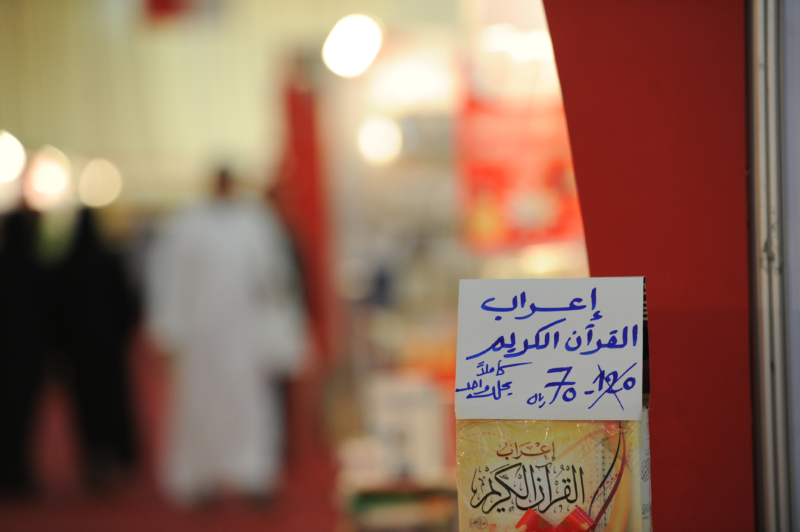 إعراب
القرآن الكريم
120 - 70 ريال
كاملاً
بمجلد واحد
إعراب
القرآن الكريم